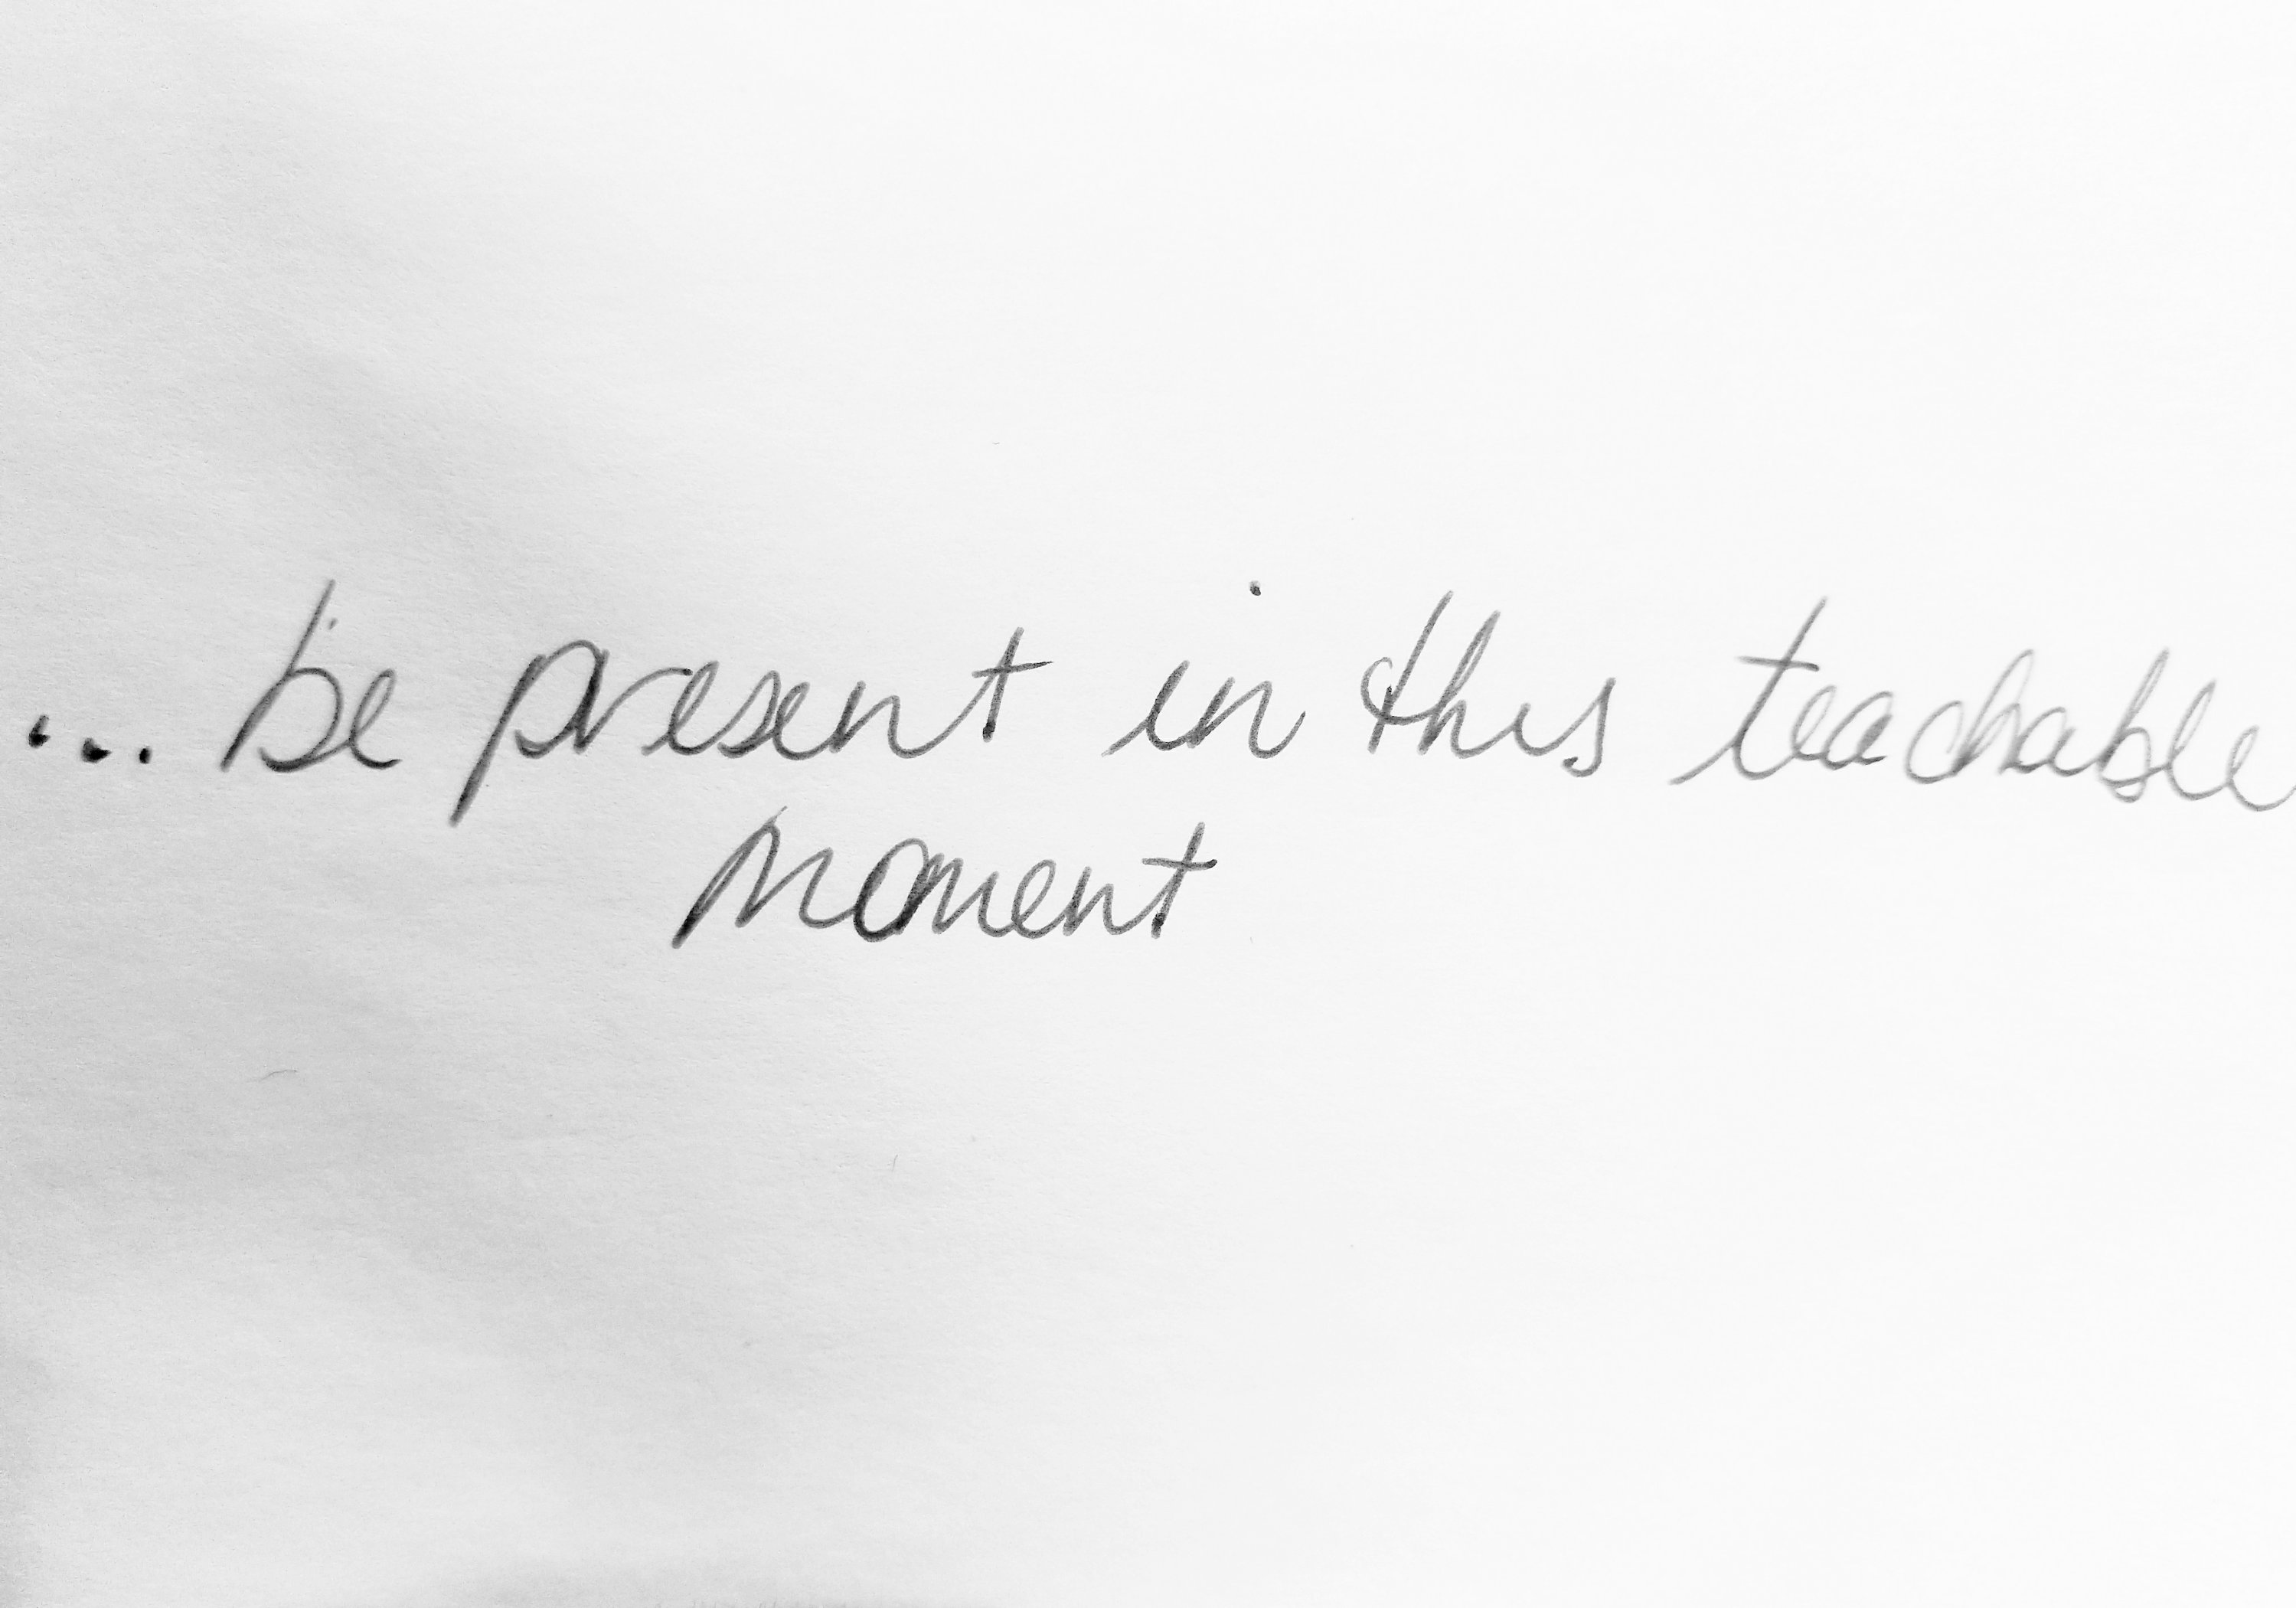 ... be present in this teachable
moment